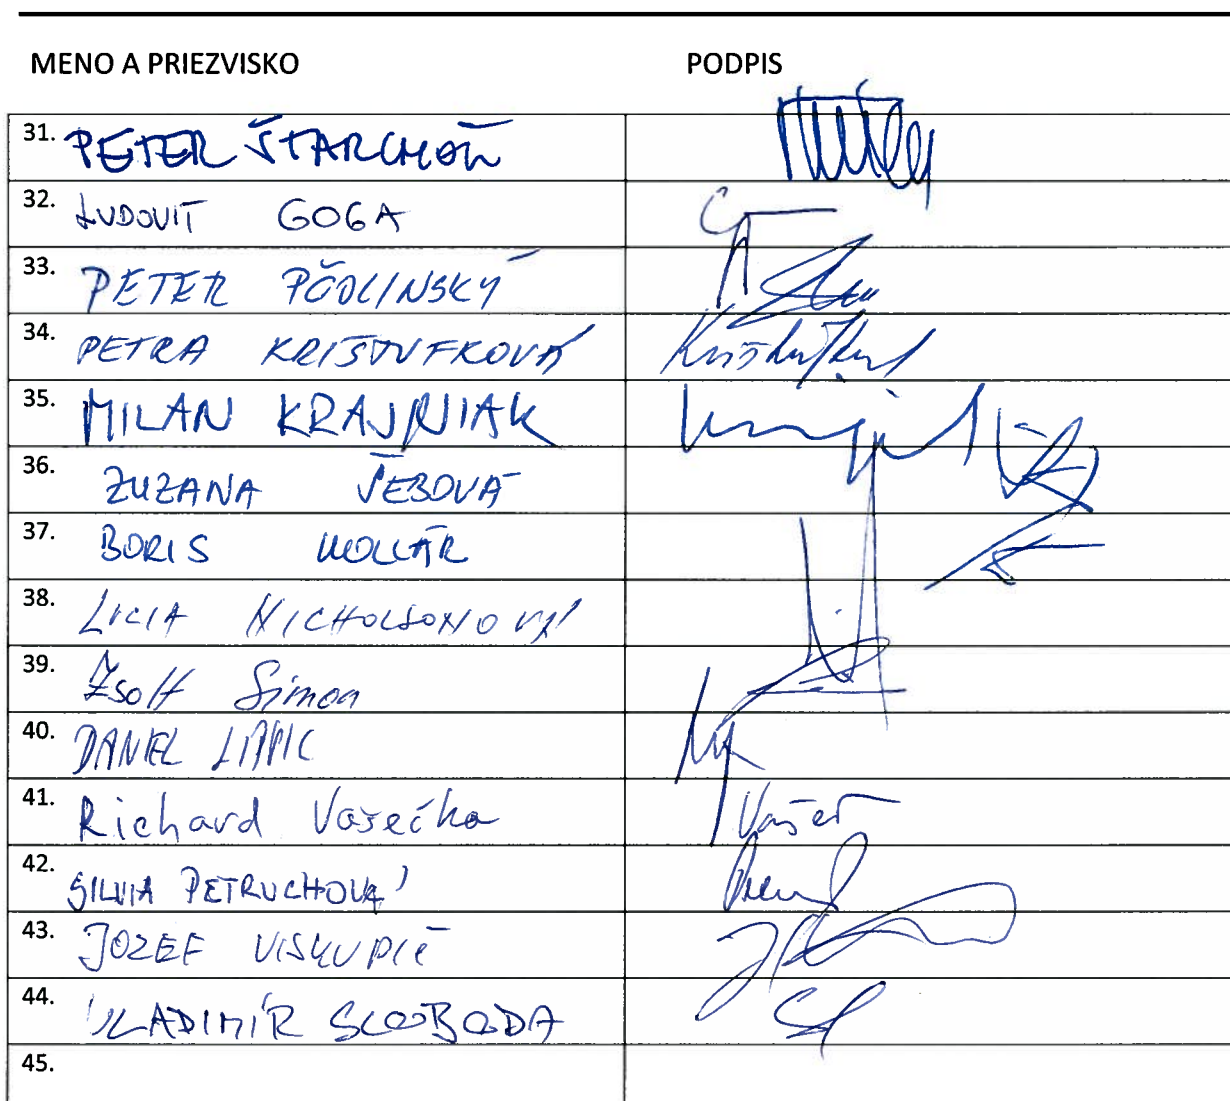 MENO A PRIEZVISKO PODPIS
31. PETER ŠTARCHOŇ
32. ĽUDOVIT GOGA
33. PETER PČOLINSKÝ
34. PETRA KRIŠTUFKOVÁ
35. MILAN KRAJNIAK
36. ZUZANA ŠEBOVÁ
37. BORIS KOLLÁR
38. LUCIA NICHOLSONOVÁ
39. Zsolt Simon
40. DANIEL LIPŠIC
41. Richard Vašečka Vašeč
42. SILVIA PETRUCHOVÁ
43. JOZEF VISKUPIČ
44. VLADIMÍR SLOBODA
45.